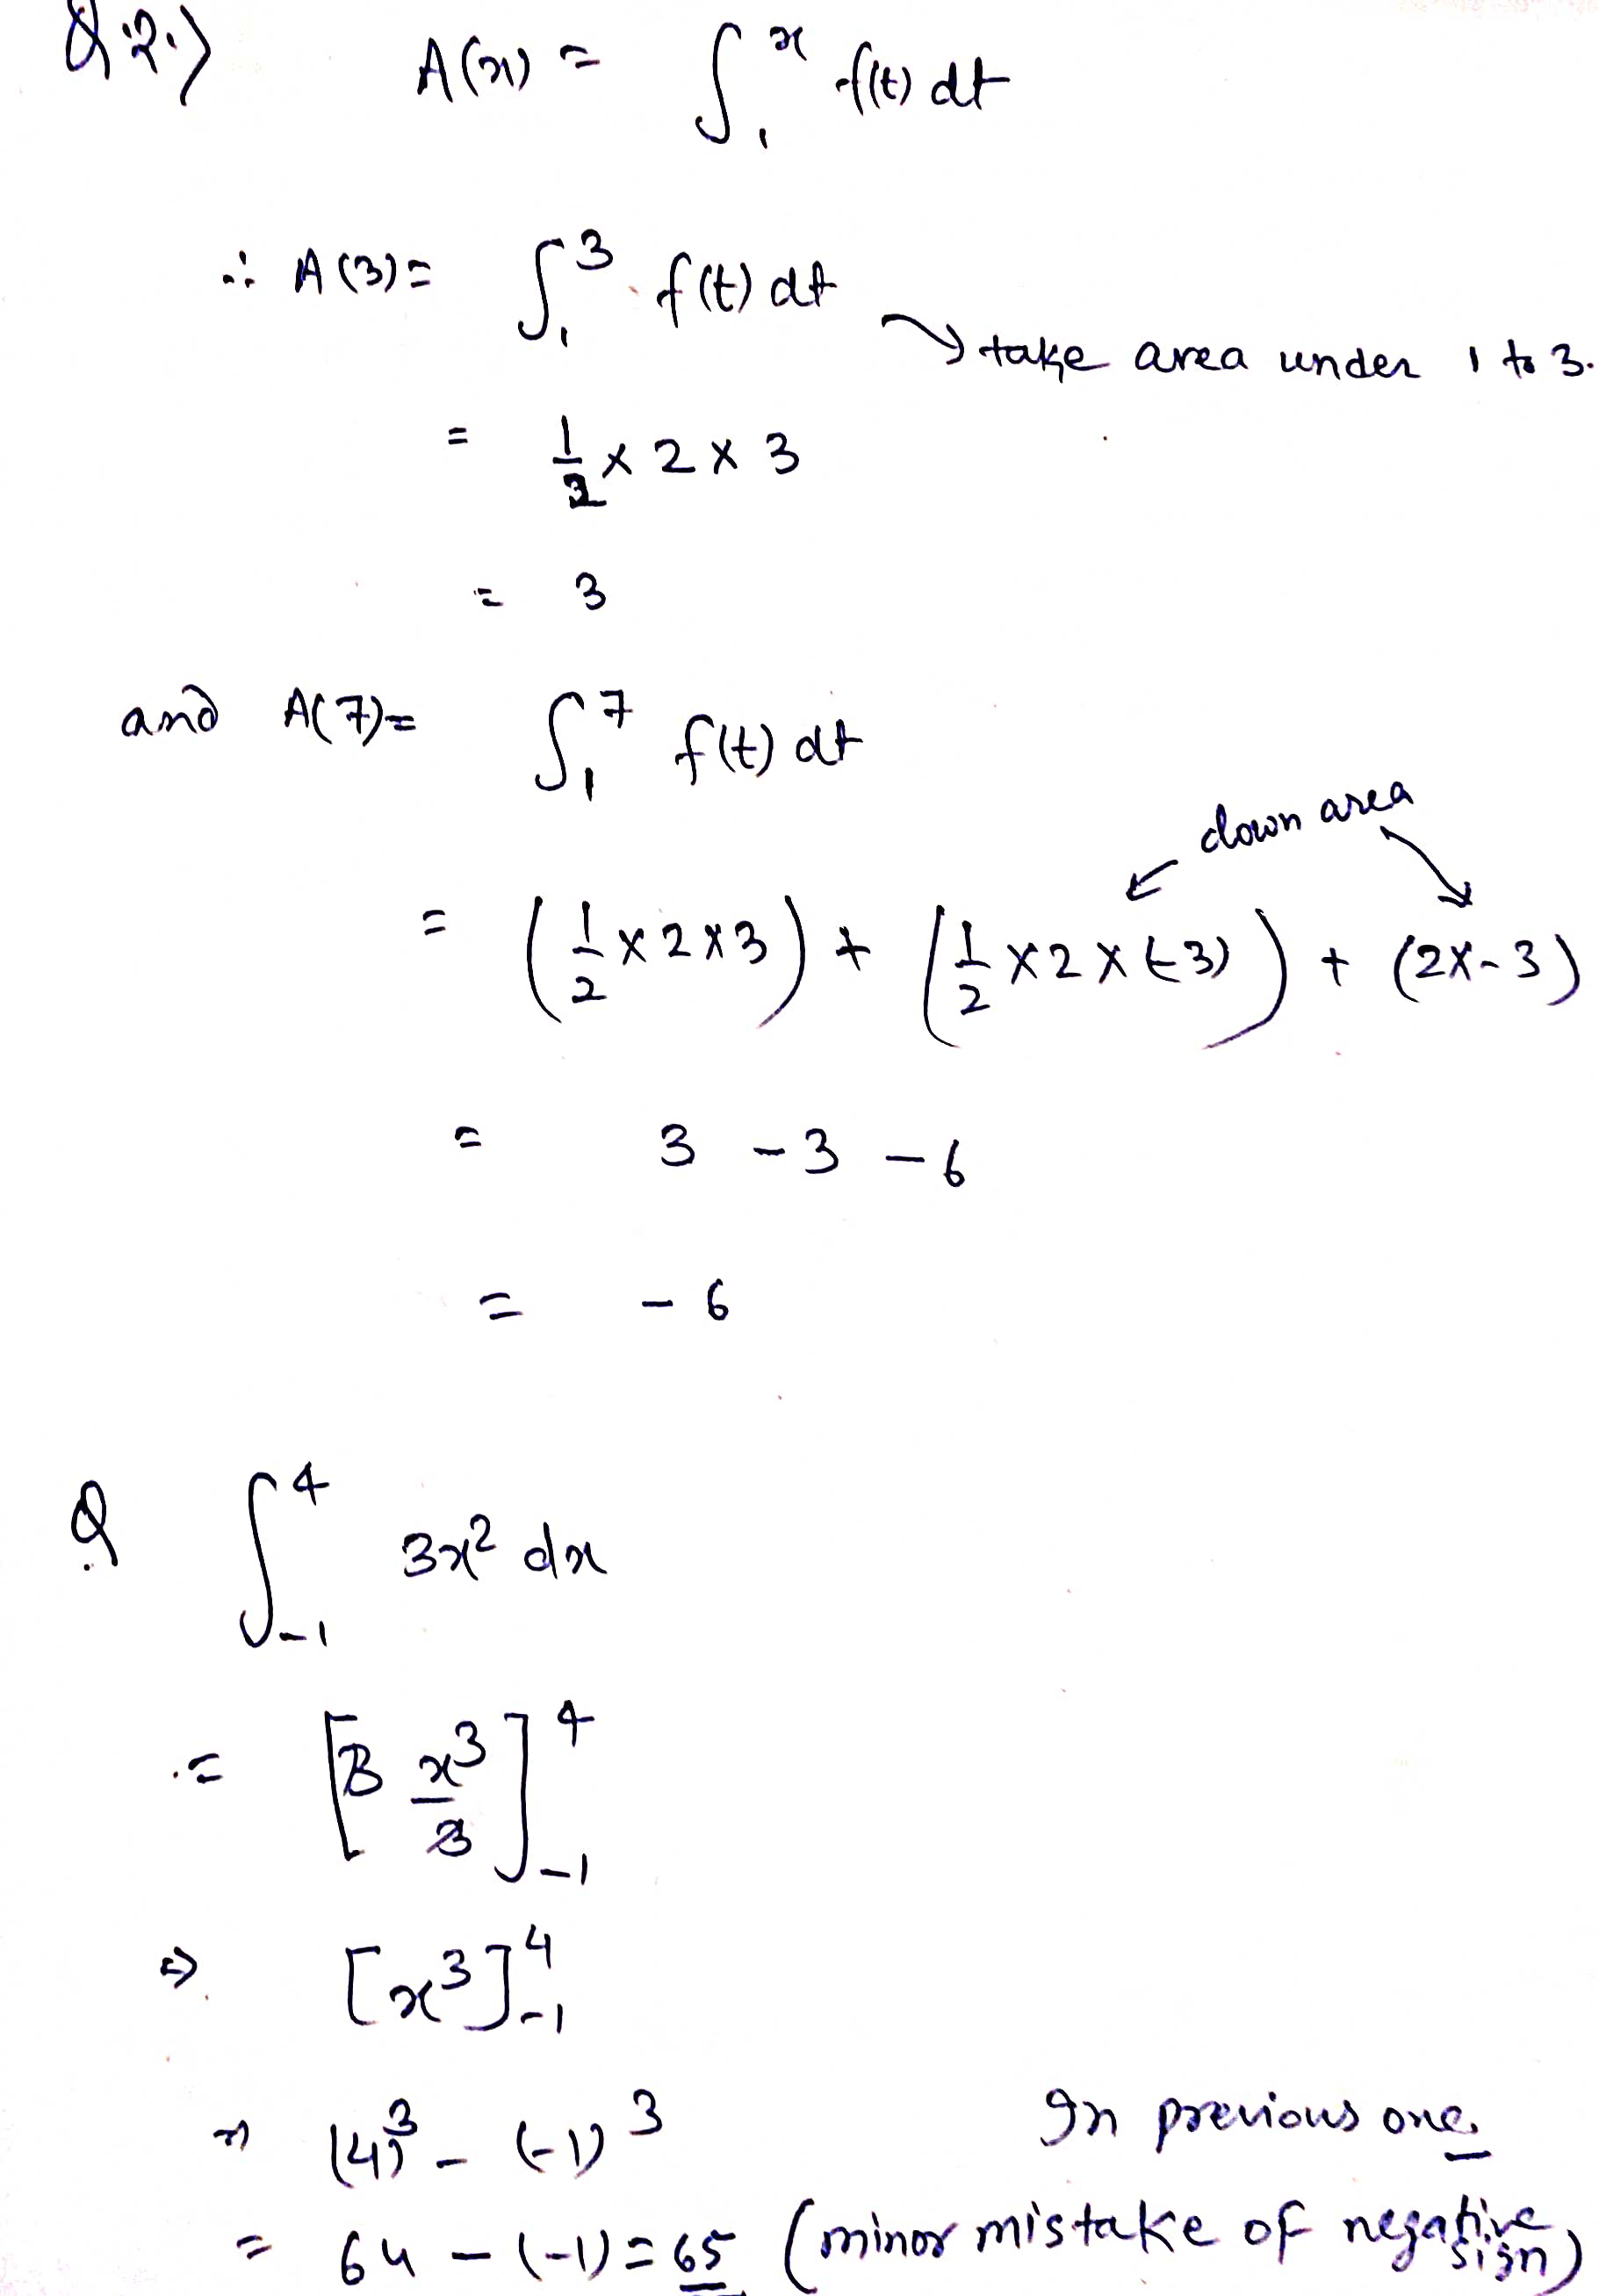 Q.2.) A(x) = ∫₁ˣ f(t) dt
∴ A(3) = ∫₁³ f(t) dt
→ take area under 1 to 3.
= 1/2 × 2 × 3
= 3
and A(7) = ∫₁⁷ f(t) dt
down area
= (1/2 × 2 × 3) + (1/2 × 2 × (-3)) + (2 × -3)
= 3 - 3 - 6
= - 6
Q. ∫₋₁⁴ 3x² dx
= [3 x³/3]₋₁⁴
⇒ [x³]₋₁⁴
⇒ (4)³ - (-1)³
In previous one
= 64 - (-1) = 65 (minor mistake of negative sign)